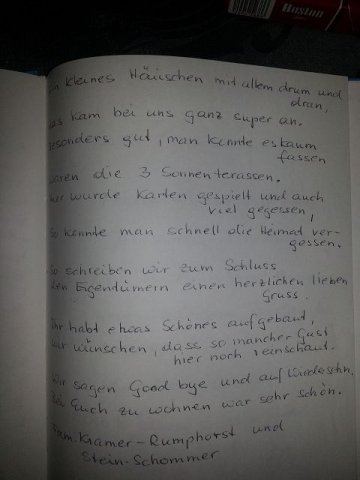 Boston
kleines Häuschen mit allem drum und
dran,
das kam bei uns ganz super an.
Besonders gut, man konnte es kaum
fassen
waren die 3 Sonnenterassen.
Hier wurde Karten gespielt und auch
viel gegessen,
so konnte man schnell die Heimat ver-
gessen.
So schreiben wir zum Schluss
den Eigendümern einen herzlichen lieben
Gruss.
Ihr habt etwas Schönes aufgebaut,
wir wünschen, dass so mancher Gast
hier noch reinschaut.
Wir sagen Good bye und auf Wiedersehn,
Bei Euch zu wohnen war sehr schön.
Fam. Kramer-Rumphorst und
Stein-Schommer